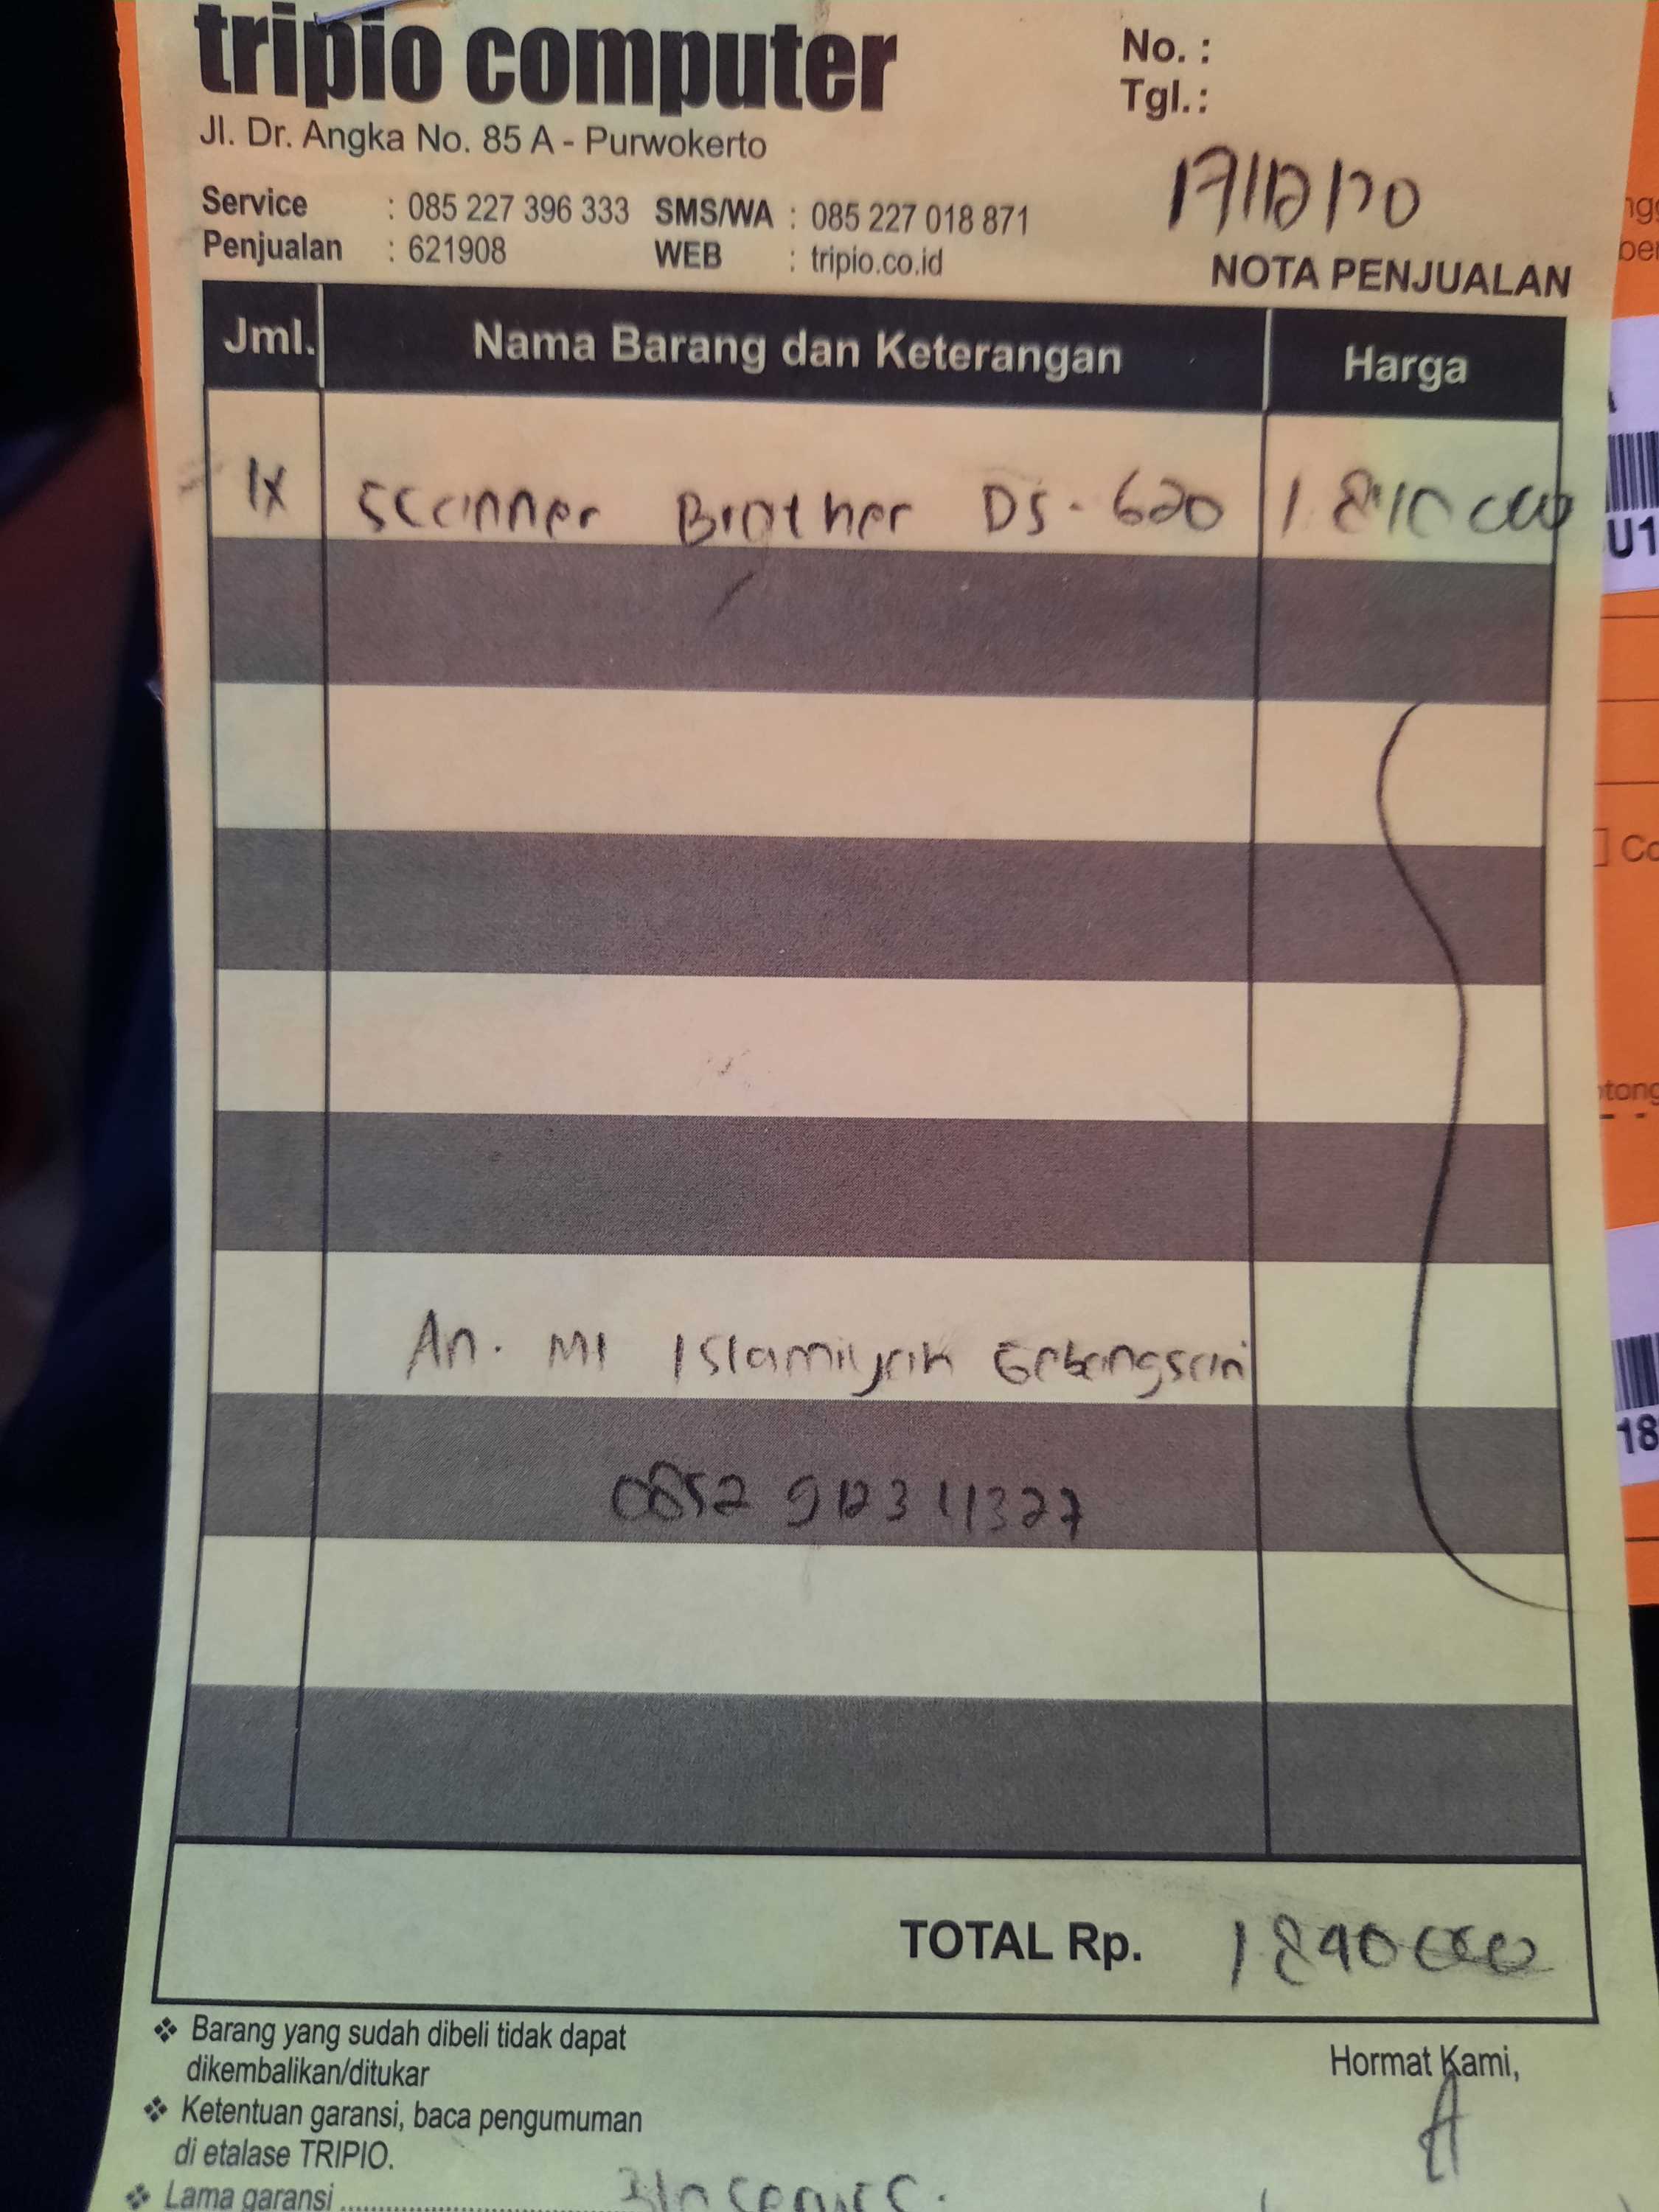 tripio computer
Jl. Dr. Angka No. 85 A - Purwokerto
Service : 085 227 396 333 SMS/WA : 085 227 018 871
Penjualan : 621908 WEB : tripio.co.id
No. :
Tgl. :
17/12/20
NOTA PENJUALAN
Jml. Nama Barang dan Keterangan Harga
1x Scanner Brother DS-620 1.840.000
An. MI Islamiyah Grbangsari
0852
TOTAL Rp. 1.840.000
❖ Barang yang sudah dibeli tidak dapat
dikembalikan/ditukar
❖ Ketentuan garansi, baca pengumuman
di etalase TRIPIO.
❖ Lama garansi
Hormat Kami,
U1
Co
18